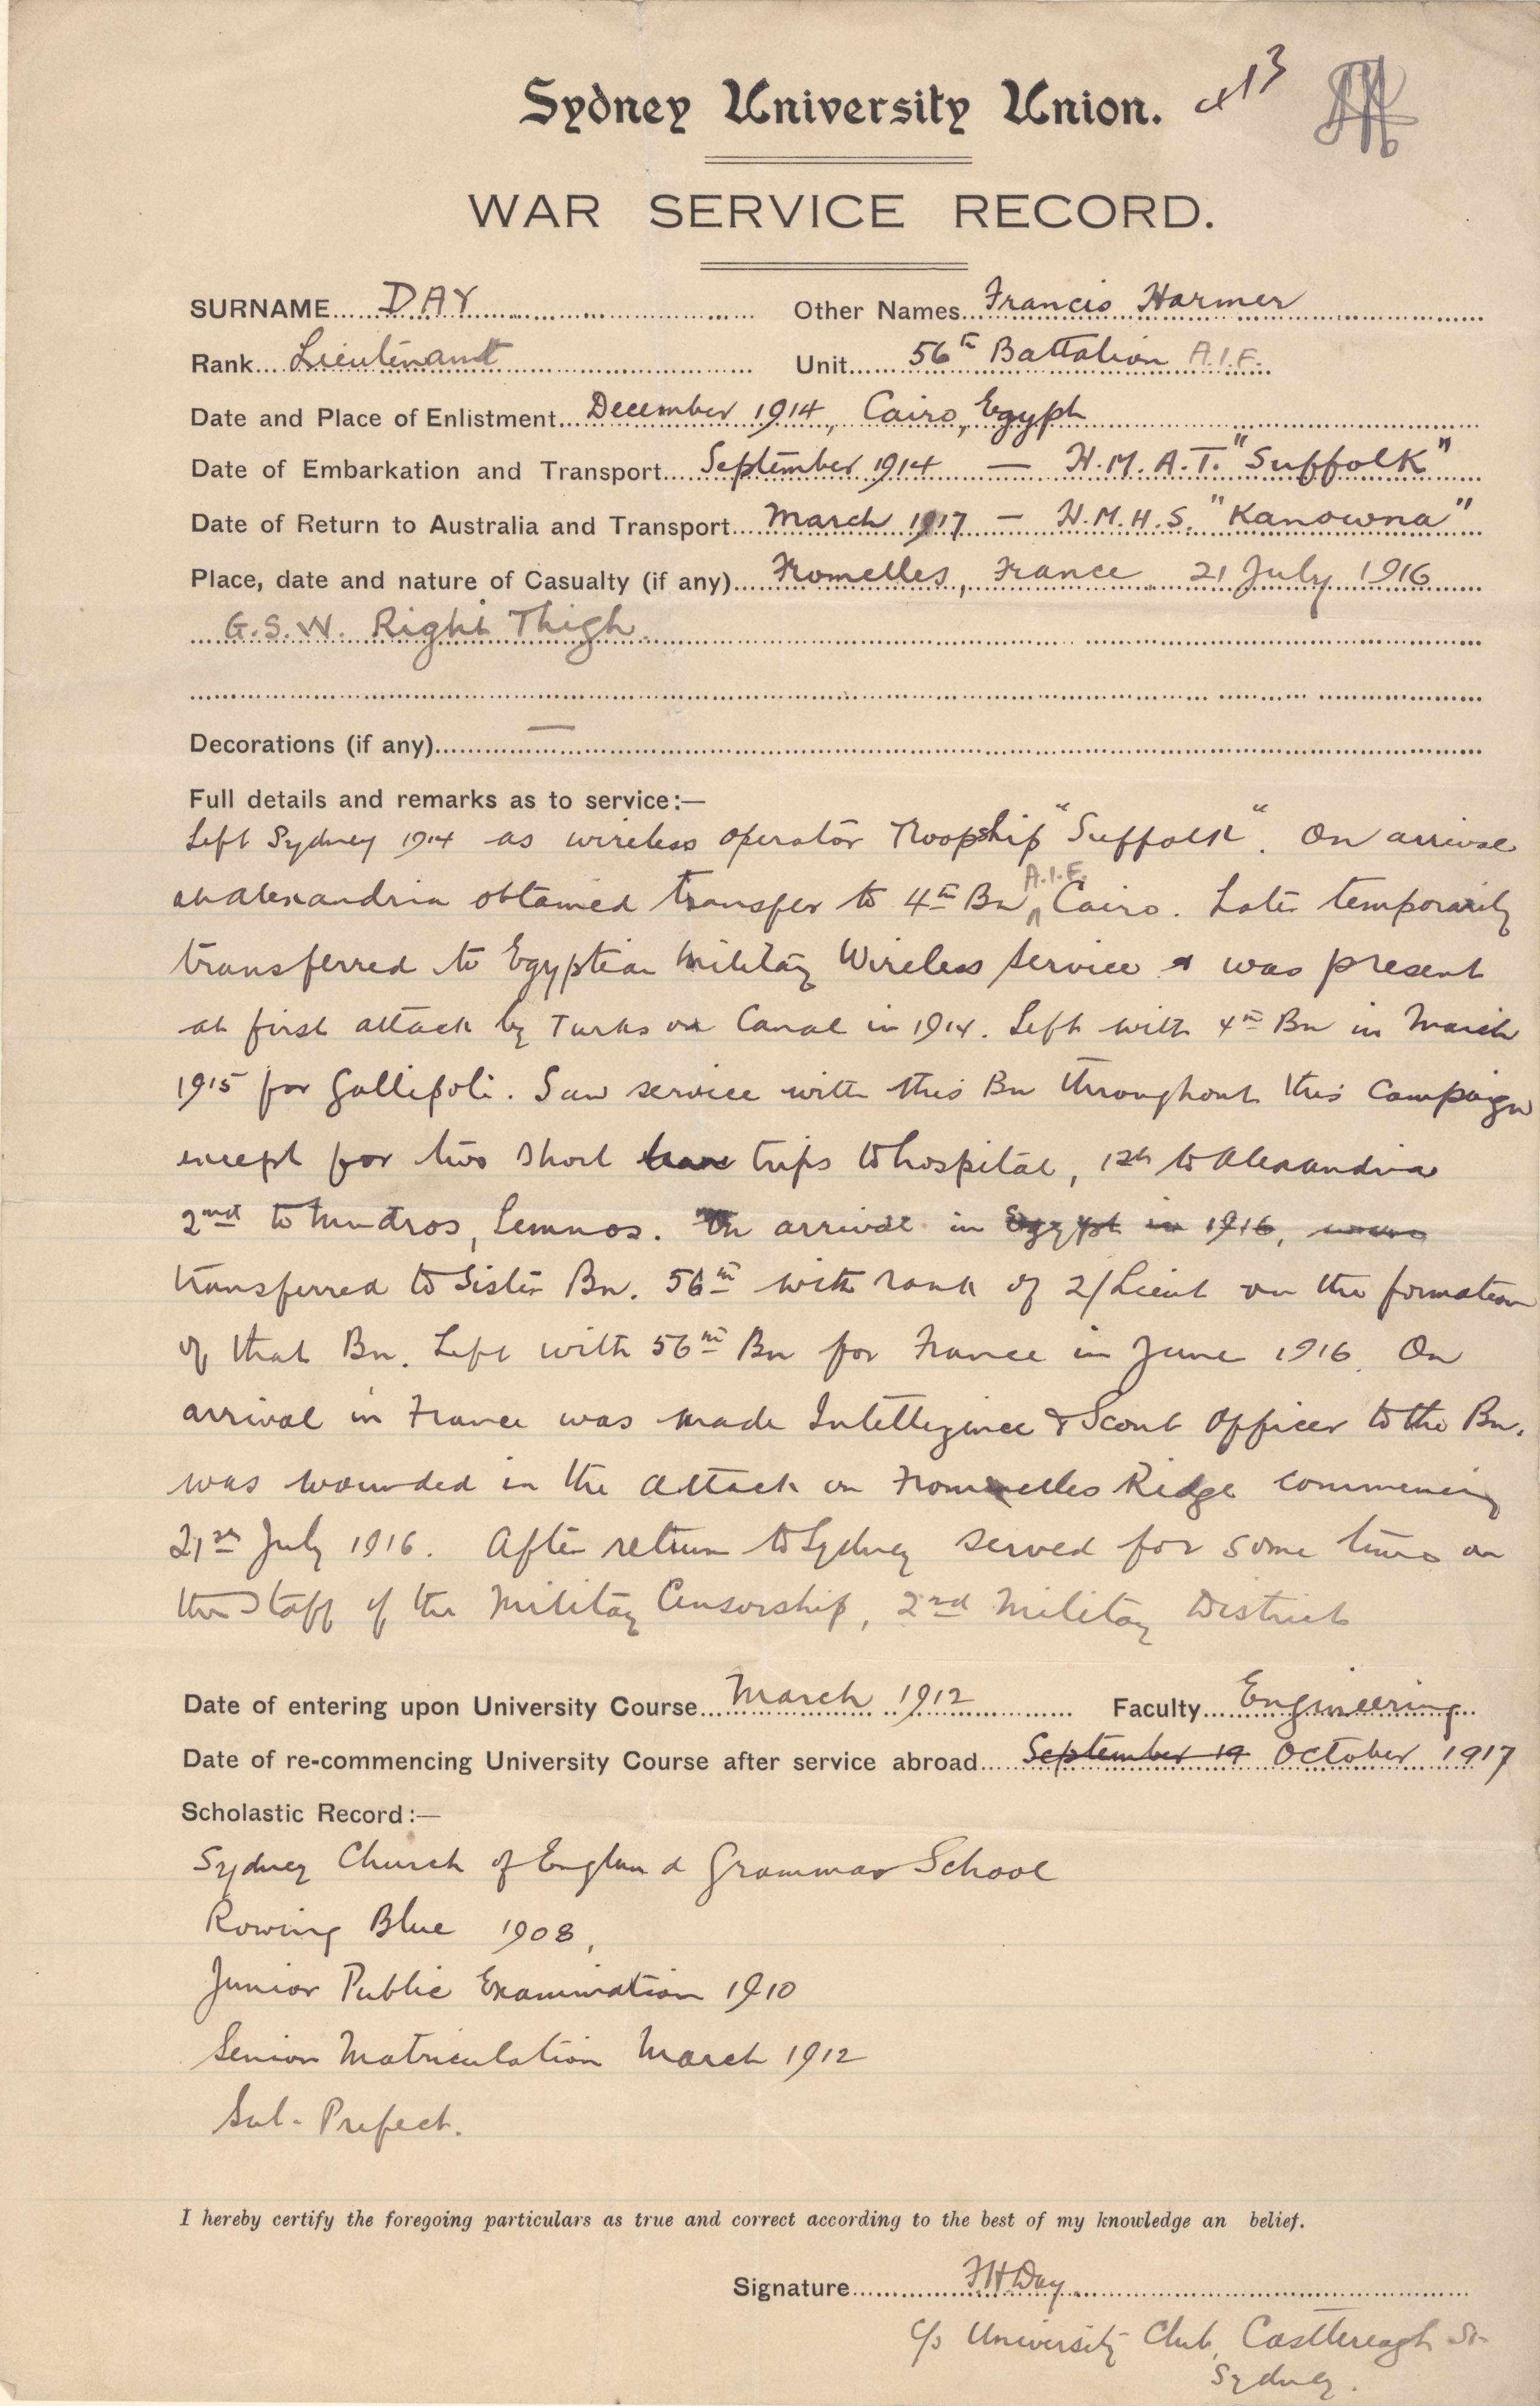 Sydney University Union.
WAR SERVICE RECORD.
SURNAME DAY Other Names Francis Harmer
Rank Lieutenant Unit 56th Battalion A.I.F.
Date and Place of Enlistment December 1914, Cairo, Egypt
Date of Embarkation and Transport September 1914 — H.M.A.T. "Suffolk"
Date of Return to Australia and Transport March 1917 – H.M.H.S. "Kanowna"
Place, date and nature of Casualty (if any) Fromelles, France 21 July 1916
G.S.W. Right Thigh.
Decorations (if any) —
Full details and remarks as to service:—
Left Sydney 1914 as wireless operator Troopship "Suffolk". On arrival
at Alexandria obtained transfer to 4th Bn A.I.F. Cairo. Later temporarily
transferred to Egyptian Military Wireless Service & was present
at first attack by Turks on Canal in 1914. Left with 4th Bn in March
1915 for Gallipoli. Saw service with this Bn throughout this Campaign
except for two short trips to hospital, 1st to Alexandria
2nd to Mudros, Lemnos. On arrival in Egypt in 1916, was
transferred to Sister Bn. 56th with rank of 2/Lieut on the formation
of that Bn. Left with 56th Bn for France in June 1916. On
arrival in France was made Intelligence & Scout Officer to the Bn.
was wounded in the attack on Fromelles Ridge commencing
21st July 1916. After return to Sydney served for some time on
the Staff of the Military Censorship, 2nd Military District
Date of entering upon University Course March 1912 Faculty Engineering
Date of re-commencing University Course after service abroad September 19 October 1917
Scholastic Record:—
Sydney Church of England Grammar School
Rowing Blue 1908,
Junior Public Examination 1910
Senior Matriculation March 1912
Sub-Prefect.
I hereby certify the foregoing particulars as true and correct according to the best of my knowledge an belief.
Signature FH Day
c/o University Club, Castlereagh St
Sydney.